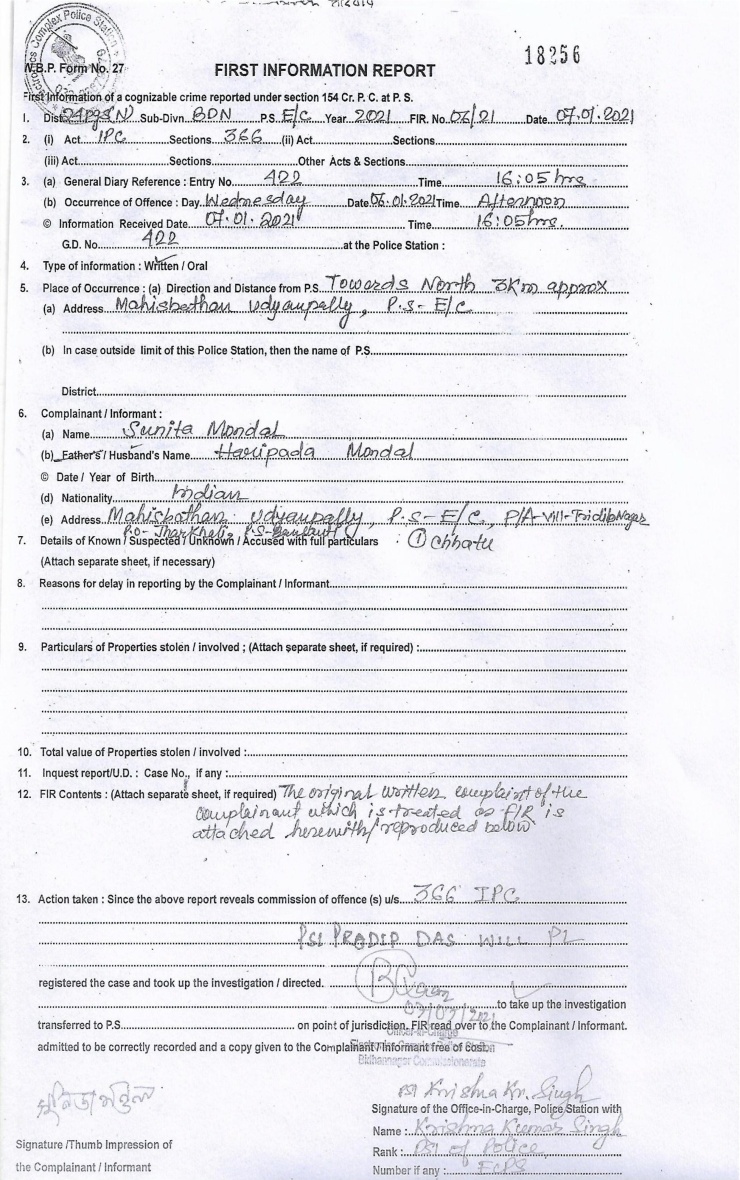 18256
W.B.P. Form No. 27
FIRST INFORMATION REPORT
First Information of a cognizable crime reported under section 154 Cr. P. C. at P. S.
1. Dist. 24 pgs (N) Sub-Divn. BDN P.S. E/C Year 2021 FIR. No. 06/21 Date 07.01.2021
2. (i) Act IPC Sections 366 (ii) Act Sections
(iii) Act Sections Other Acts & Sections
3. (a) General Diary Reference : Entry No. 422 Time 16:05 hrs
(b) Occurrence of Offence : Day Wednesday Date 06.01.2021 Time Afternoon
© Information Received Date 07.01.2021 Time 16:05 hrs.
G.D. No. 422 at the Police Station :
4. Type of information : Written / Oral
5. Place of Occurrence : (a) Direction and Distance from P.S. Towards North 3Km approx
(a) Address Mahisbathan Udyanpally, P.s- E/C
(b) In case outside limit of this Police Station, then the name of P.S.
District
6. Complainant / Informant :
(a) Name Sunita Mondal
(b) Father's / Husband's Name Haripada Mondal
© Date / Year of Birth
(d) Nationality Indian
(e) Address Mahisbathan Udyanpally, P.s-E/C, P/A-Vill-TridibNagar
P.O-
7. Details of Known / Suspected / Unknown / Accused with full particulars : ① Chhatu
(Attach separate sheet, if necessary)
8. Reasons for delay in reporting by the Complainant / Informant
9. Particulars of Properties stolen / involved ; (Attach separate sheet, if required) :
10. Total value of Properties stolen / involved :
11. Inquest report/U.D. : Case No., if any :
12. FIR Contents : (Attach separate sheet, if required) The original written complaint of the
complainant which is treated as FIR is
attached herewith/reproduced below
13. Action taken : Since the above report reveals commission of offence (s) u/s 366 IPC
PSI PRADIP DAS WILL PL
registered the case and took up the investigation / directed.
07/01/2021
to take up the investigation
transferred to P.S. on point of jurisdiction. FIR read over to the Complainant / Informant.
Officer-in-Charge
admitted to be correctly recorded and a copy given to the Complainant / Informant free of cost.
Bidhannagar Commissionerate
সুনিতা মন্ডল
PSI Krishna Kr. Singh
Signature of the Office-in-Charge, Police Station with
Name : Krishna Kumar Singh
Signature /Thumb Impression of
Rank : PSI of Police
the Complainant / Informant
Number if any : ECPS